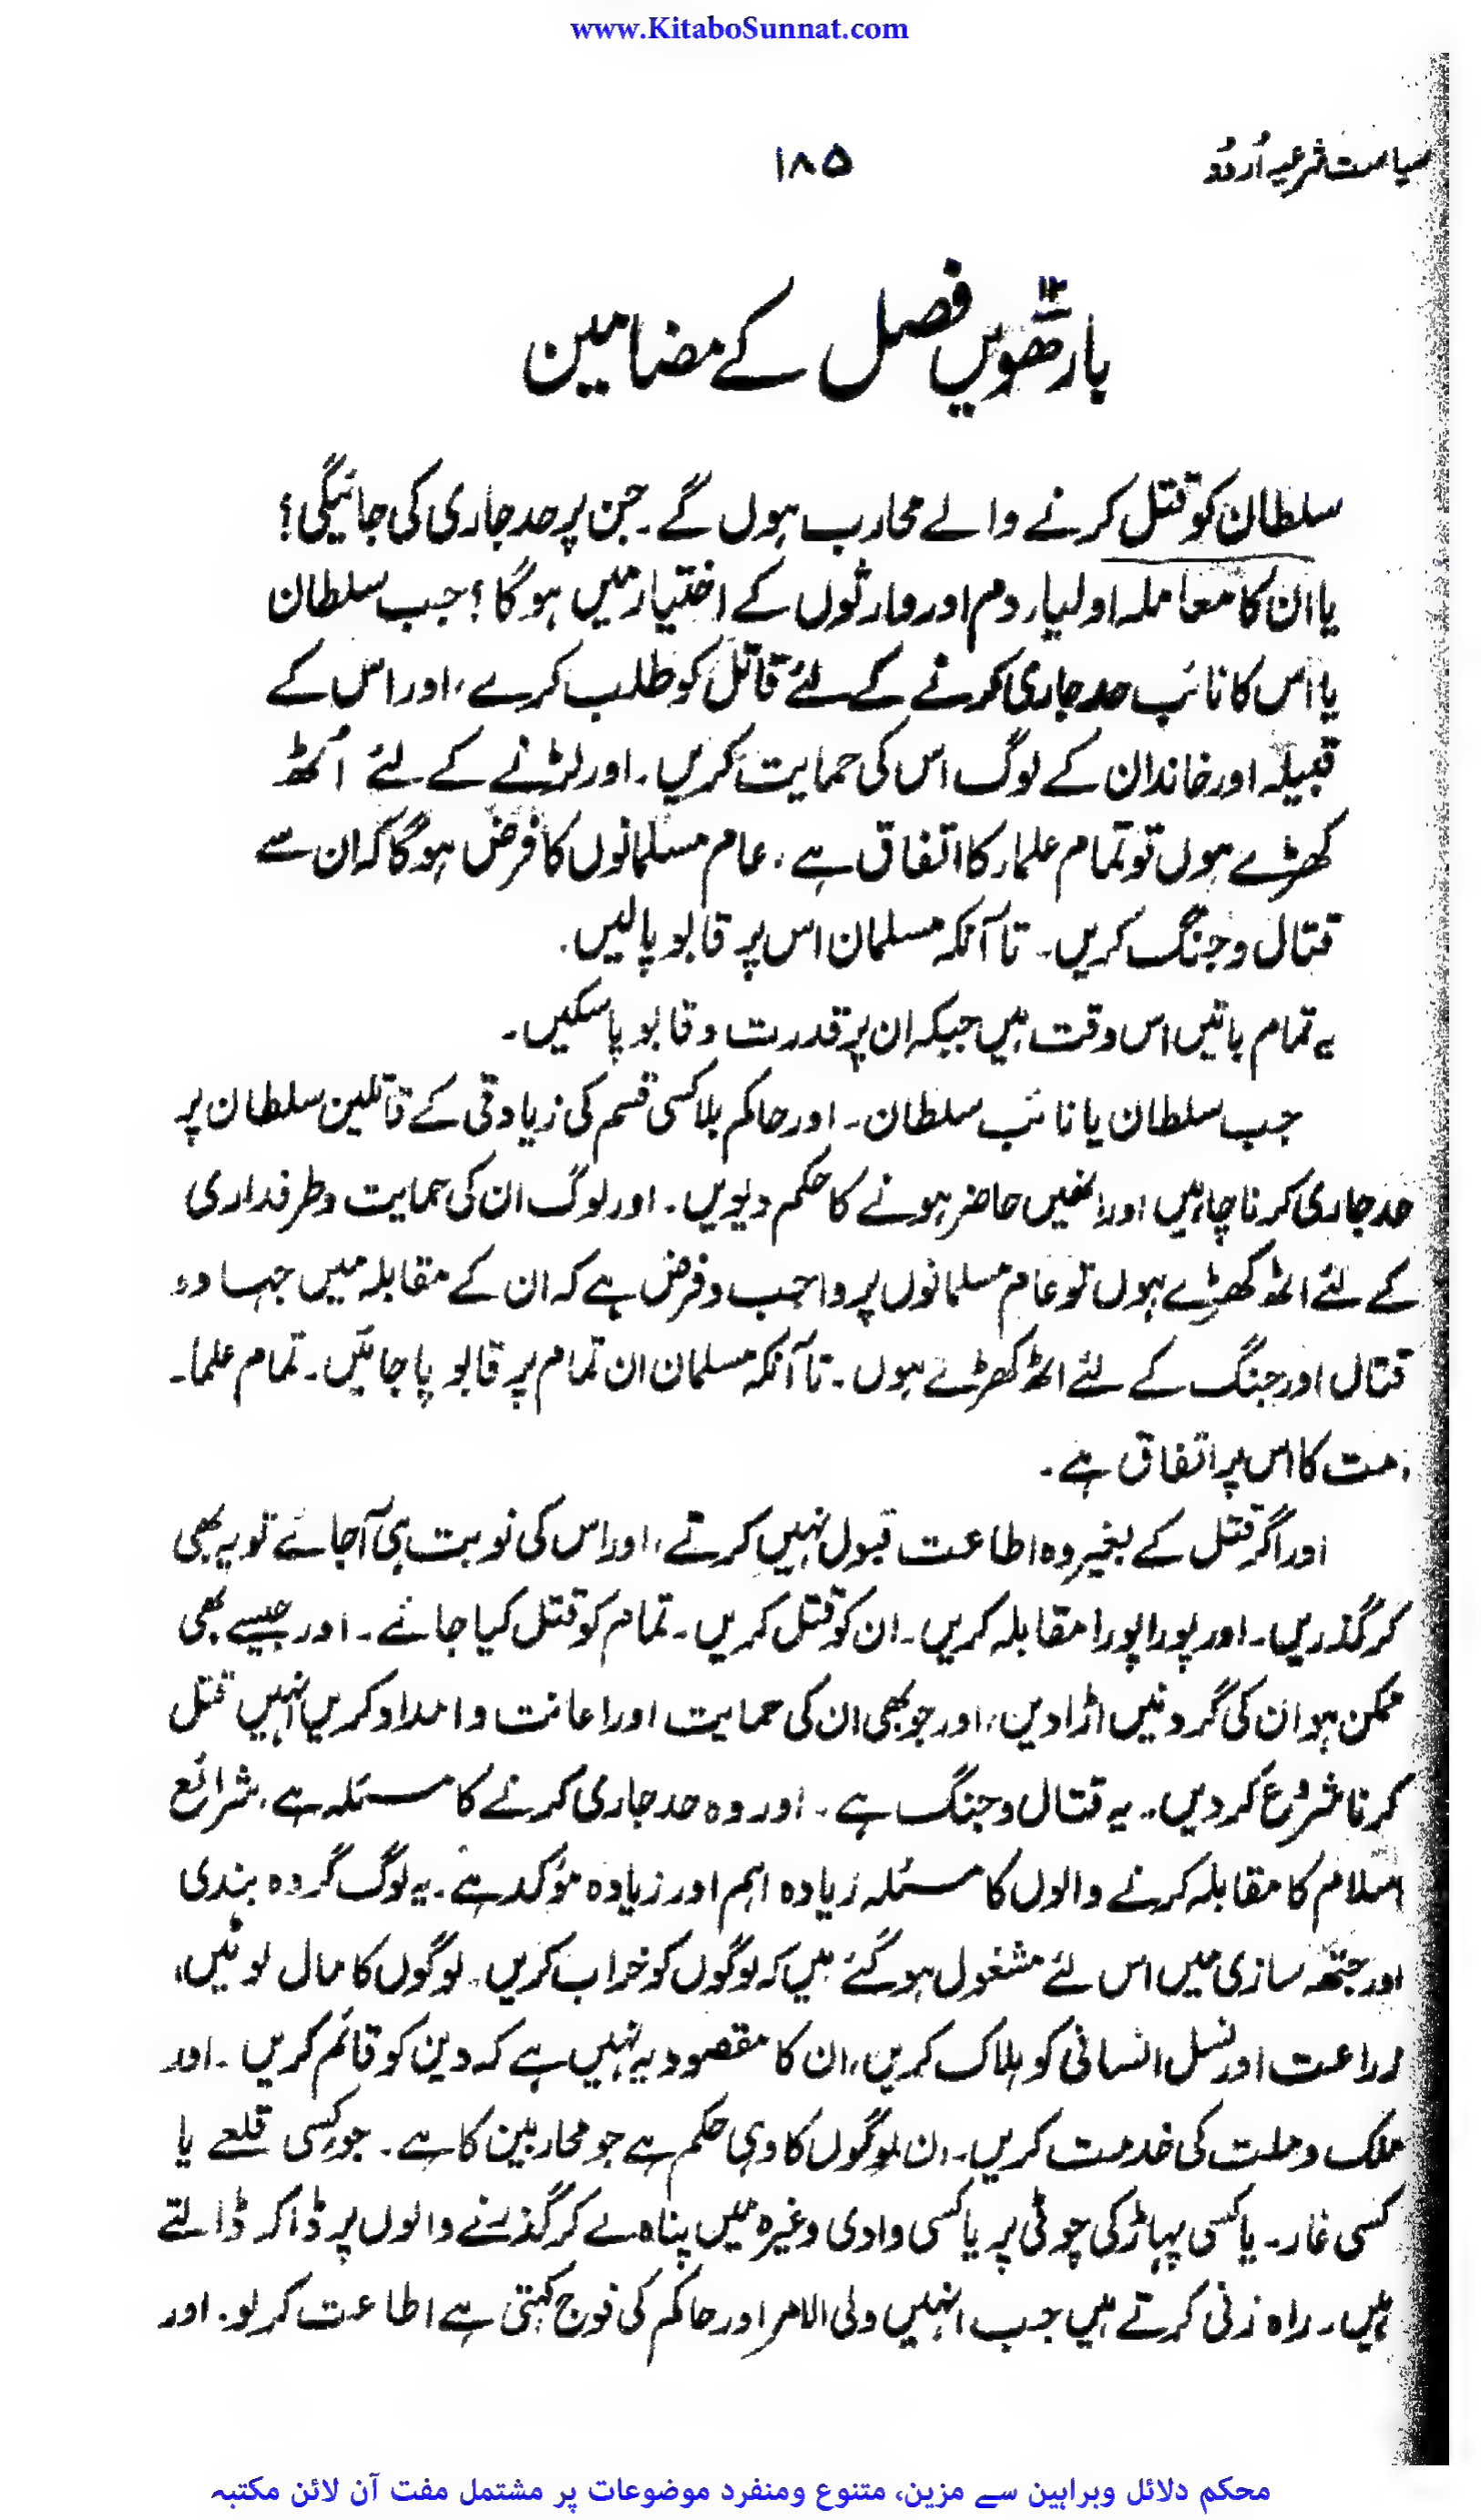 www.KitaboSunnat.com
سیاست شرعیہ اُردُو
۱۸۵
بارھویں ۱۲ فصل کے مضامین
سلطان کو قتل کرنے والے محارب ہوں گے۔ جن پر حد جاری کی جائیگی؟
یا ان کا معاملہ اولیاء دم اور وارثوں کے اختیار میں ہوگا؟ جب سلطان
یا اس کا نائب حد جاری کرنے کے لئے قاتل کو طلب کرے، اور اس کے
قبیلہ اور خاندان کے لوگ اس کی حمایت کریں۔ اور لڑنے کے لئے اُٹھ
کھڑے ہوں تو تمام علماء کا اتفاق ہے، عام مسلمانوں کا فرض ہوگا کہ ان سے
قتال و جنگ کریں۔ تا آنکہ مسلمان اس پر قابو پالیں۔
یہ تمام باتیں اس وقت ہیں جبکہ ان پر قدرت و قابو پا سکیں۔
جب سلطان یا نائب سلطان۔ اور حاکم بلا کسی قسم کی زیادتی کے قاتلین سلطان پر
حد جاری کرنا چاہیں اور انھیں حاضر ہونے کا حکم دیویں۔ اور لوگ ان کی حمایت و طرفداری
کے لئے اٹھ کھڑے ہوں تو عام مسلمانوں پر واجب و فرض ہے کہ ان کے مقابلہ میں جہاد و
قتال اور جنگ کے لئے اٹھ کھڑے ہوں۔ تا آنکہ مسلمان ان تمام پر قابو پا جائیں۔ تمام علماء
امت کا اس پر اتفاق ہے۔
اور اگر قتل کے بغیر وہ اطاعت قبول نہیں کرتے، اور اس کی نوبت ہی آجائے تو یہ بھی
کر گذریں۔ اور پورا پورا مقابلہ کریں۔ ان کو قتل کریں۔ تمام کو قتل کیا جائے۔ اور جیسے بھی
ممکن ہو ان کی گردنیں اڑا دیں، اور جو بھی ان کی حمایت اور اعانت و امداد کریں انہیں قتل
کرنا شروع کر دیں۔ یہ قتال و جنگ ہے۔ اور وہ حد جاری کرنے کا مسئلہ ہے، شرائع
اسلام کا مقابلہ کرنے والوں کا مسئلہ زیادہ اہم اور زیادہ مؤکد ہے۔ یہ لوگ گروہ بندی
اور جتھہ سازی میں اس لئے مشغول ہو گئے ہیں کہ لوگوں کو خراب کریں۔ لوگوں کا مال لوٹیں،
زراعت اور نسل انسانی کو ہلاک کریں، ان کا مقصود یہ نہیں ہے کہ دین کو قائم کریں۔ اور
ملک و ملت کی خدمت کریں۔ ان لوگوں کا وہی حکم ہے جو محاربین کا ہے۔ جو کسی قلعے یا
کسی غار۔ یا کسی پہاڑ کی چوٹی پر یا کسی وادی وغیرہ میں پناہ لے کر گذرنے والوں پر ڈاکہ ڈالتے
ہیں۔ راہ زنی کرتے ہیں جب انہیں ولی الامر اور حاکم کی فوج کہتی ہے اطاعت کر لو۔ اور
محکم دلائل وبراہین سے مزین، متنوع ومنفرد موضوعات پر مشتمل مفت آن لائن مکتبہ